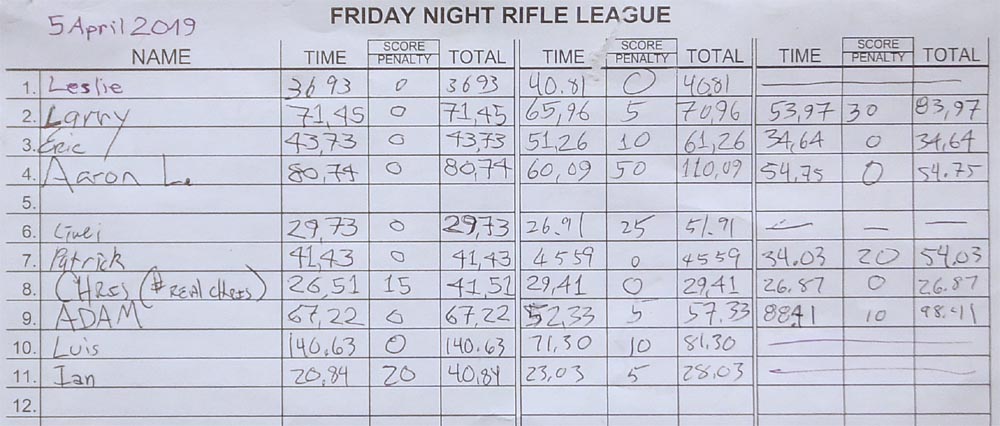 5 April 2019
FRIDAY NIGHT RIFLE LEAGUE
NAME TIME SCORE PENALTY TOTAL TIME SCORE PENALTY TOTAL TIME SCORE PENALTY TOTAL
1. Leslie 3693 0 3693 40.81 0 40.81 — —
2. Larry 71,45 0 71,45 65,96 5 70,96 53,97 30 83,97
3. Eric 43,73 0 43,73 51,26 10 61,26 34,64 0 34,64
4. Aaron L. 80,74 0 80,74 60,09 50 110,09 54,75 0 54.75
5.
6. 29,73 0 29,73 26.91 25 51.91 — — —
7. Patrick 41,43 0 41,43 4559 0 4559 34.03 20 54.03
8. CHRIS (#REALCHRIS) 26,51 15 41,51 29,41 0 29,41 26.87 0 26.87
9. ADAM 67,22 0 67,22 52,33 5 57.33 8841 10 98.41
10. Luis 140.63 0 140.63 71,30 10 81,30
11. Ian 20,84 20 40,84 23,03 5 28,03
12.